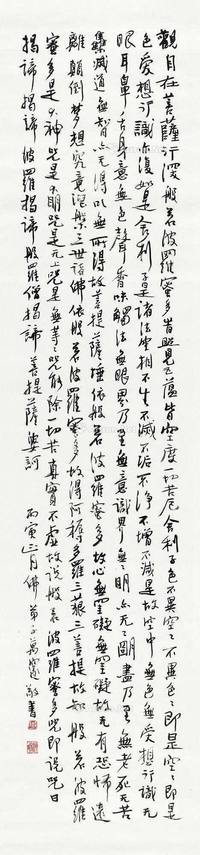 觀自在菩薩行深般若波羅蜜多時照見五蘊皆空度一切苦厄舍利子色不異空空不異色色即是空空即是
色受想行識亦復如是舍利子是諸法空相不生不滅不垢不淨不增不減是故空中無色無受想行識無
眼耳鼻舌身意無色聲香味觸法無眼界乃至無意識界無無明亦無無明盡乃至無老死無苦
集滅道無智亦無得以無所得故菩提薩埵依般若波羅蜜多故心無罣礙無罣礙故無有恐怖遠
離顛倒夢想究竟涅槃三世諸佛依般若波羅蜜多故得阿耨多羅三藐三菩提故知般若波羅
蜜多是大神咒是大明咒是無上咒是無等等咒能除一切苦真實不虛故說般若波羅蜜多咒即說咒曰
揭諦揭諦波羅揭諦波羅僧揭諦菩提薩婆訶
丙寅三月佛弟子
敬書